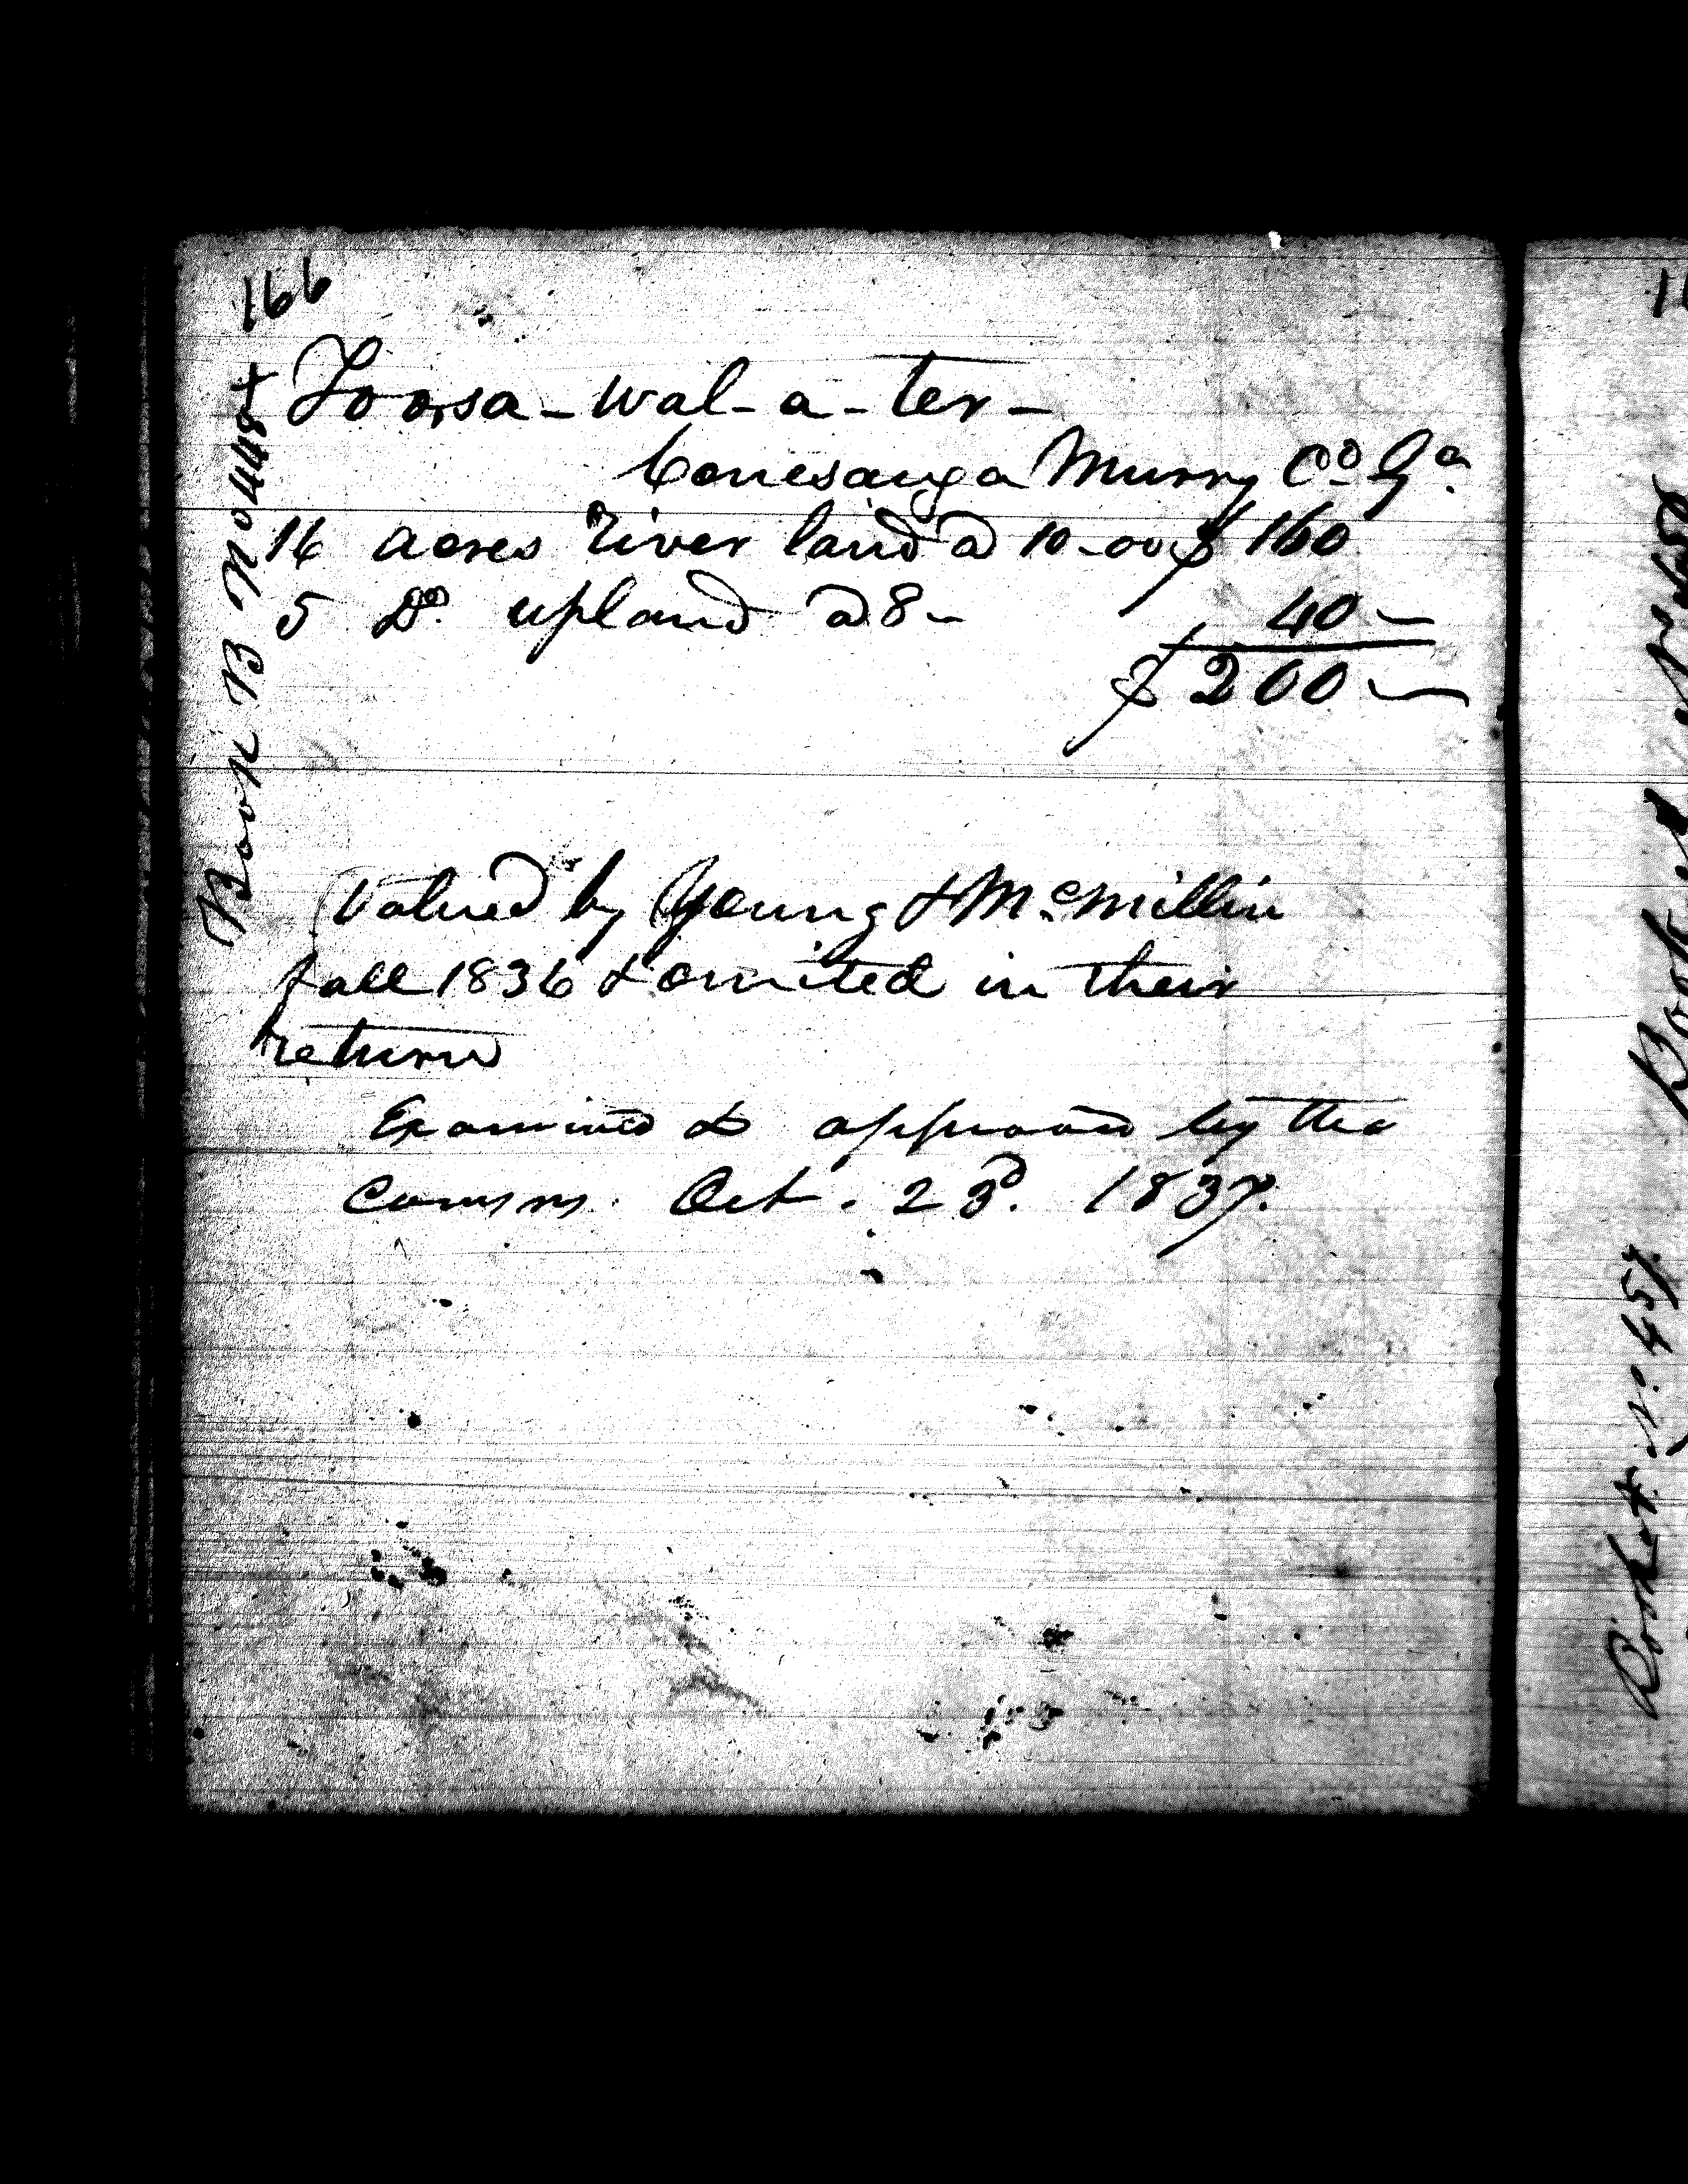 166
Book B No 448 +
Toosa-wal-a-ter-
Conesauga Murry Co. Ga.
16 acres River land @ 10-00 $ 160
5 Do. upland @ 8- 40-
$ 200-
Valued by Young & McMillin
fall 1836 & omited in their
return
Examined & approved by the
Comms. Oct. 23d. 1837.
Book A No 450
No. 457